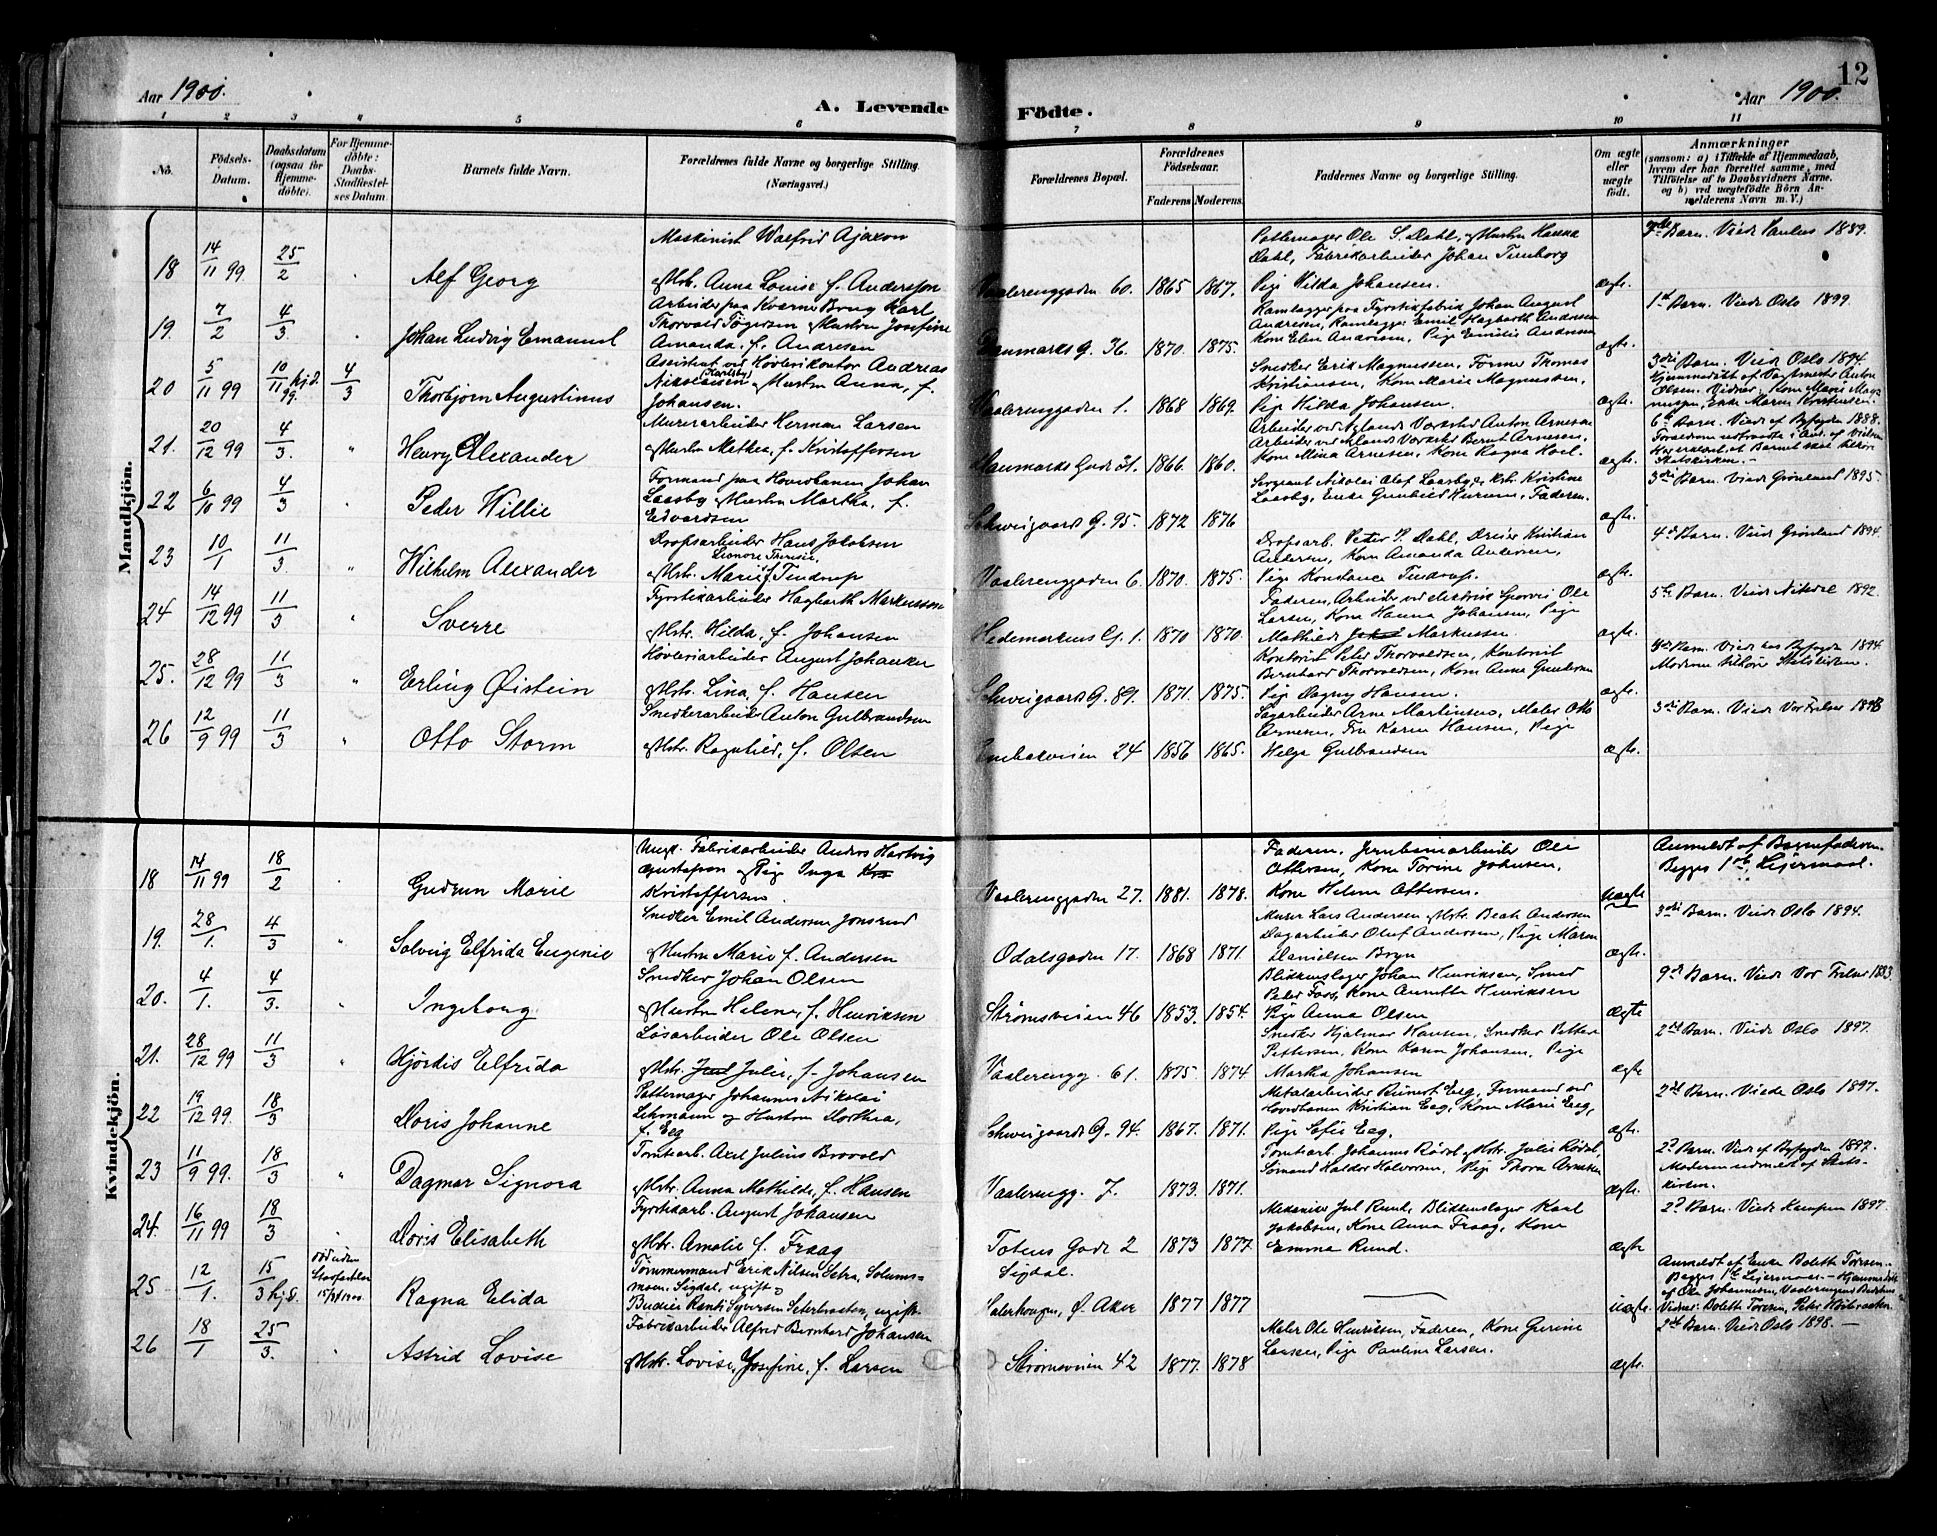 Aar 1900.
A. Levende
1 2 3 4 5 6
No.
Födsels-Datum.
Daabsdatum (ogsaa for Hjemmedöbte).
For Hjemmedöbte: Daabs-Stadfæstelses Datum.
Barnets fulde Navn.
Forældrenes fulde Navne og borgerlige Stilling. (Næringsvei.)
Mandkjön.
Maskinist Walfrid Ajaxon
18 14/11 99 25/2 Alf Georg
Mstr. Anna Louise f. Andersson
Arbeider paa Kværns Brug Karl
19. 7/2 4/3 Johan Ludvig Emanuel
Thorvald Tøgersen Hustru Josefine
Amanda f. Andresen
Assistent ved Høvlerikontor Andreas
20 5/11 99 10/11 99 hjd. 4/3 Thorbjørn Augustinus
Nikolaisen (Karlsby) Hustru Anna, f.
Johansen.
Murerarbeider Herman Larsen
21. 20/12 99 4/3. " Henry Alexander
Hustru Mathea, f. Kristoffersen
Formand paa Hovedbanen Johan
22 6/10 99 4/3 Peder Willie
Laasby Hustru Martha, f.
Edvardsen
Dropsarbeider Hans Jakobsen
23 10/1 11/3. " Wilhelm Alexander
Leonore Theresie
Mstr. Marie f. Tindrup
24 14/12 99 11/3 " Sverre
Fyrstikarbeider Hagbarth Markussen
Mstr. Hilda, f. Johansen
Høvleriarbeider August Johansen
25. 28/12 99 11/3 " Erling Øistein
Mstr. Lina, f. Hansen
Snedkerarbeider Anton Gulbrandsen
26 12/9 99 11/3 " Otto Storm
Mstr. Ragnhild, f. Olsen
Kvindekjön.
Ungk. Fabrikarbeider Anders Hartvig
18 14/11 99 18/2 Gudrun Marie
Gustafson Pige Inga
Kristoffersen
Snedker Emil Andersen Jonsrud
19. 28/1. 4/3 " Solveig Elfrida Eugenie
Hustru Marie f. Andersen
Snedker Johan Olsen
20. 4/1. 4/3. " Ingeborg
Hustru Helene, f. Henriksen
Løsarbeider Ole Olsen
21. 28/12 99 11/3 " Hjørdis Elfrida
Mstr. Julie, f. Johansen
Pottemager Johannes Nikolai
22 19/12 99. 18/3 Doris Johanne
Lehmann og Hustru Dorthea,
f. Eeg
Tomtearb. Axel Julius Brovold
23 11/9 99. 18/3 " Dagmar Signora
Mstr. Anna Mathilde, f. Hansen
Fyrstikarb. August Johansen
24. 16/11 99 18/3 Doris Elisabeth
Mstr. Amalie f. Fraag
Tømmermand Erik Nilsen Setra, Solums-
25 12/1. 15/3 hjd. død uden Stadfæstelse 15/3 1900 Ragna Elida
moen, Sigdal, ugift
Budeie Ranti Syversen Seterbraaten, ugift.
Fabrikarbeider Alfred Bernhard Johansen
26 18/1 25/3. Astrid Lovise
Mstr. Lovise Josefine, f. Larsen
12
Födte.
Aar 1900.
7 8 9 10 11
Forældrenes Bopæl.
Forældrenes Födselsaar.
Faderens Moderens.
Faddernes Navne og borgerlige Stilling.
Om ægte eller uægte födt.
Anmærkninger
(saasom: a) i Tilfælde af Hjemmedaab,
hvem der har forrettet samme, med
Tilföielse af to Daabsvidners Navne.
og b) ved uægtefödte Börn An-
melderens Navn m. V.)
Pottemager Ole S. Dahl, Hustru Hanna
Dahl, Fabrikarbeider Johan Timborg
Vaalerenggaden 60. 1865 1867. Pige Hilda Johansen. ægte.
Barn. Viede Paulus 1889.
Ramlægger paa Fyrstikfabrik Johan August
Andresen, Ramlægger Emil Hagbarth Andresen
Danmarks G. 36. 1870. 1875. Kone Elen Andresen, Pige Emilie Andresen ægte.
1st Barn. Viede Oslo 1899.
Snedker Erik Magnussen, Former Thomas
Kristiansen, Kone Marie Magnussen,
Vaalerenggaden 1. 1868 1869. Pige Hilda Johansen. ægte.
3die Barn. Viede Oslo 1894.
Hjemmedøbt af Vagtmester Anton
Olsen. Vidner: Kone Marie Mag-
nussen, Enke Maren Kristensen.
Arbeider ved Nylands Værksted Anton Arnesen
Arbeider ved Nylands Værksted Bernt Arnesen.
Danmarks Gade 31. 1866. 1860. Kone Mina Arnesen, Kone Ragna Hoel. ægte.
6te Barn. Viede af Byfogden 1888.
Statskirken.
Sergeant Nikolai Olaf Laasby, Kristine
Schweigaards G. 95. 1872 1876 Laasby, Enke Gunhild Hurum, Faderen. ægte.
3die Barn. Viede Grønland 1895.
Dropsarb. Peter P. Dahl, Dreier Kristian
Andersen, Kone Amanda Andersen,
Vaalerenggaden 6. 1870. 1875. Pige Konstance Tindrup. ægte.
4de Barn. Viede Grønland 1894.
Faderen, Arbeider ved elektrisk Sporvei Ole
Larsen, Kone Hanna Johansen, Pige
Hedemarkens G. 1. 1870 1870. Mathilde Markussen. ægte.
5te Barn. Viede Nitedal 1892.
Kontorist Peter Thorvaldsen, Kontorist
Bernhard Thorvaldsen, Kone Anne Gundersen
Schweigaards G. 89. 1871. 1875. Pige Dagny Hansen. ægte.
Barn. Viede hos Byfogden 1894.
Moderen tilhører Statskirken.
Sagarbeider Arne Martinsen, Maler Otto
Arnesen, Fru Karen Hansen, Pige
Enebakveien 24 1856 1865. Helga Gulbrandsen ægte.
3die Barn. Viede Vor Frelser
Faderen, Jernbanearbeider Ole
Ottersen, Kone Torine Johansen,
Vaalerenggaden 27. 1881. 1878. Kone Helene Ottersen. uægte
Anmeldt af Barnefaderen.
Begges 1ste Leiermaal.
Murer Lars Andersen Mstr. Beate Andersen
Dagarbeider Oluf Andersen, Pige Maren
Odalsgaden 17. 1868 1871. Danielsen Bryn ægte.
3die Barn. Viede Oslo 1894.
Blikkenslager Johan Henriksen, Smed
Peter Foss, Kone Annette Henriksen
Strømsveien 46 1853. 1854. Pige Anna Olsen ægte
9de Barn. Viede Vor Frelser 1883.
Snedker Hjalmar Hansen, Snedker Petter
Pettersen, Kone Karen Johansen, Pige
Vaalerengg. 61. 1875. 1874 Martha Johansen ægte
2det Barn. Viede Oslo 1897.
Metalarbeider Bünert Eeg, Formand ved
Hovedbanen Kristian Eeg, Kone Marie Eeg,
Schweigaards G. 94. 1867. 1871. Pige Sofie Eeg. ægte.
2det Barn. Viede Oslo 1897.
Tomtearb. Johannes Rödal Mstr. Julie Rödal,
Sömand Haldor Halvorsen, Pige Thora Arnesen
Vaalerengg. 7. 1873. 1871. ægte.
2d Barn. Viede af Byfogden 1897.
Moderen udmeldt af Stats-
kirken.
Mekaniker Jul Rund, Blikkenslager Karl
Jakobsen, Kone Anna Fraag, Kone
Totens Gade 2 1873 1877 Emma Rund. ægte
2d Barn. Viede Kampen 1897.
Sigdal.
Saterhougen, Ø. Aker 1877 1877 uægte.
Anmeldt af Enke Bolette Torsen.
Begges 1ste Leiermaal. - Hjemmedøbt
af Ole Johannesen, Vaalerengens Bedehus
Vidner: Bolette Torsen, Peter Høibraaten
Maler Ole Henriksen, Faderen, Kone Gurine
Larsen, Pige Pauline Larsen.
Strømsveien 42 1877. 1878 ægte.
2det Barn. Viede Oslo 1898. -